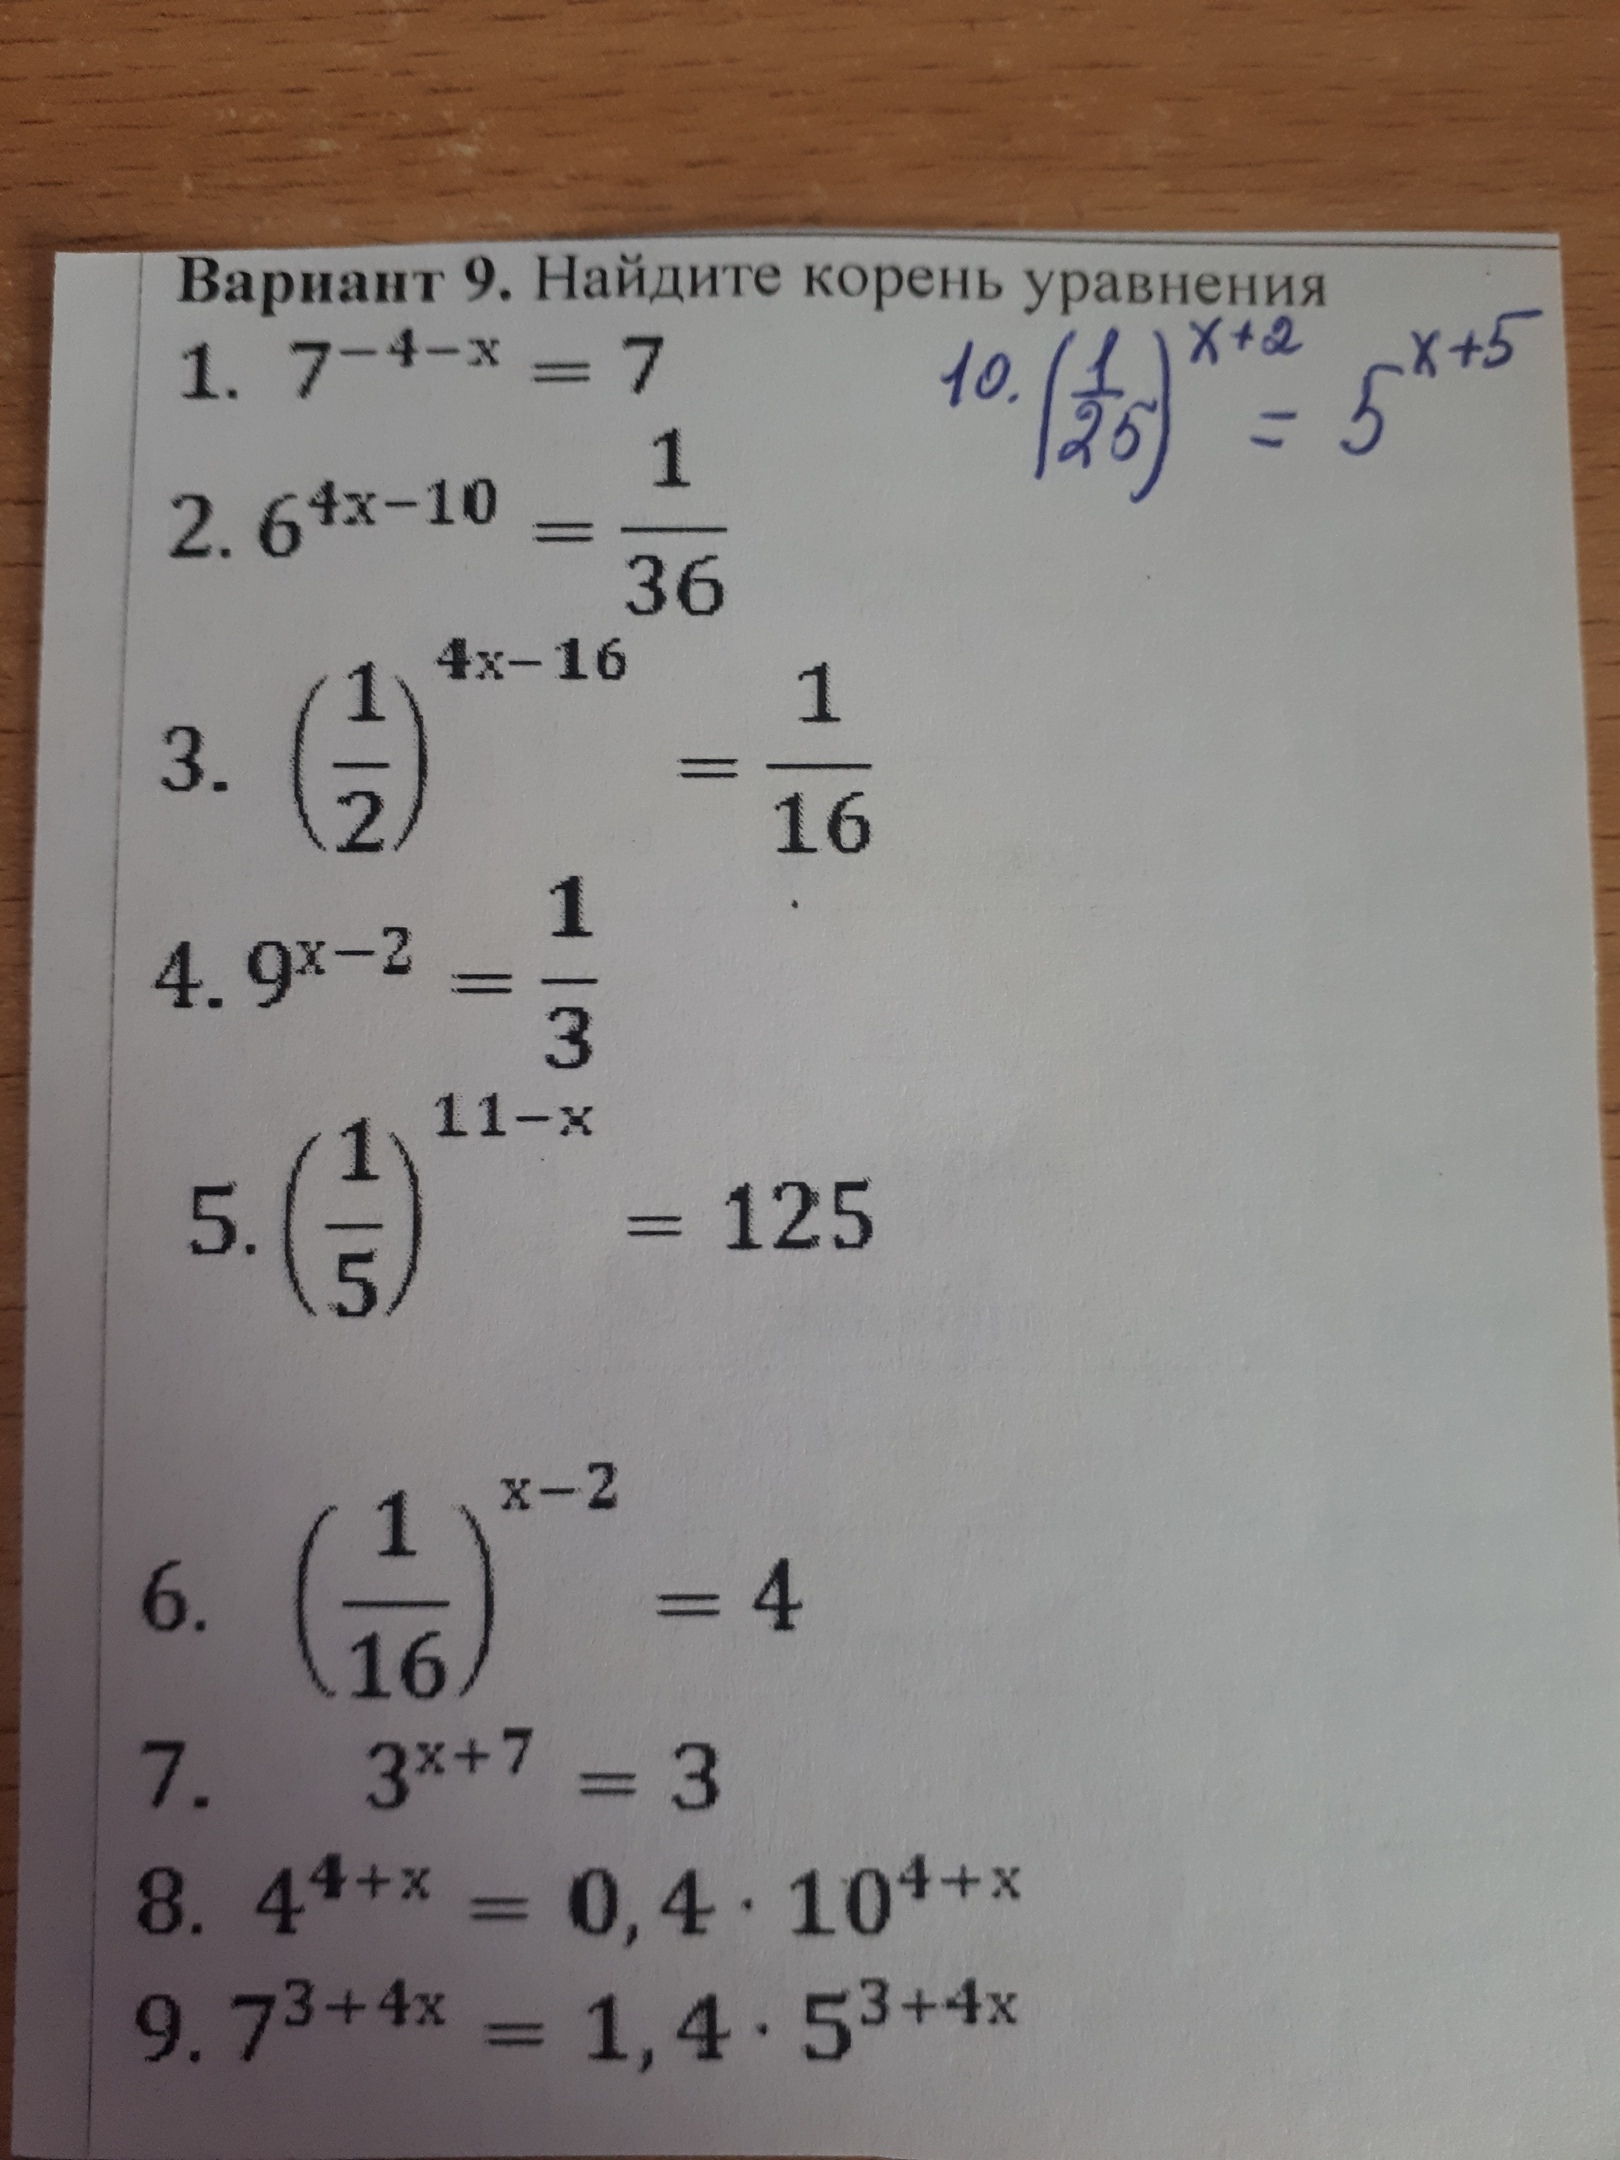 Вариант 9. Найдите корень уравнения
1. 7^{-4-x} = 7
10. (1/25)^{x+2} = 5^{x+5}
2. 6^{4x-10} = 1/36
3. (1/2)^{4x-16} = 1/16
4. 9^{x-2} = 1/3
5. (1/5)^{11-x} = 125
6. (1/16)^{x-2} = 4
7. 3^{x+7} = 3
8. 4^{4+x} = 0,4 · 10^{4+x}
9. 7^{3+4x} = 1,4 · 5^{3+4x}